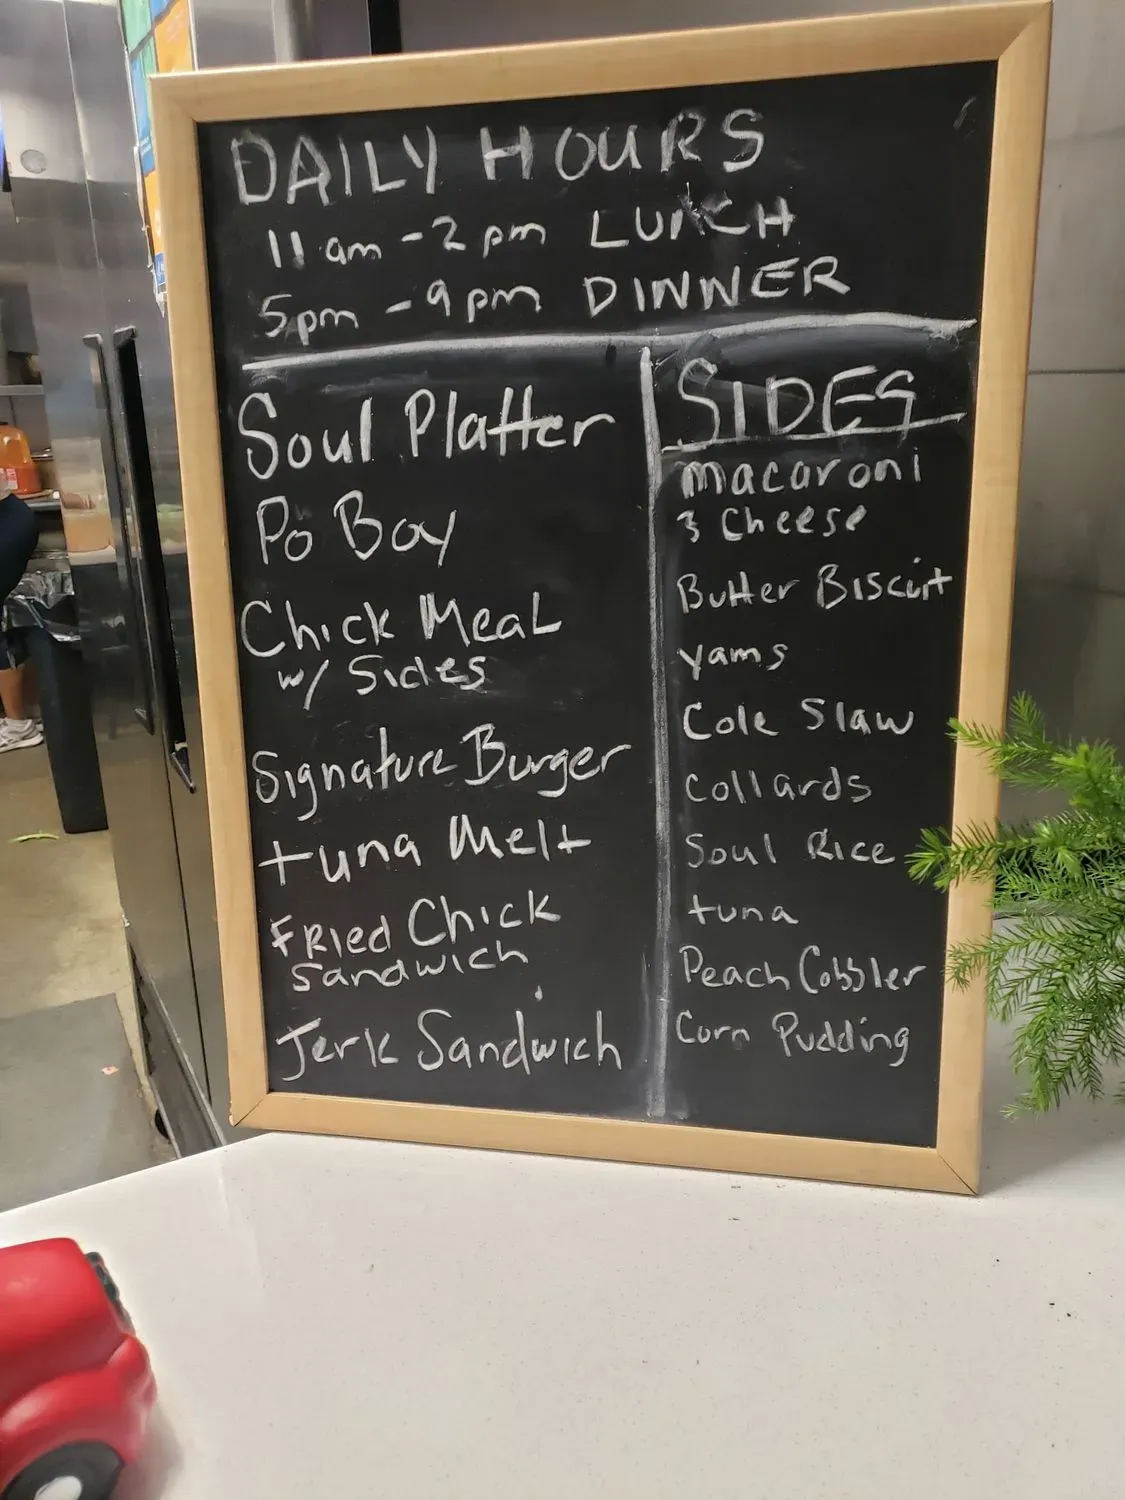 DAILY HOURS
11am - 2pm LUNCH
5pm - 9pm DINNER
Soul Platter
Po Boy
Chick Meal
w/ Sides
Signature Burger
tuna Melt
FRied Chick
sandwich
Jerk Sandwich
SIDES
macaroni
& Cheese
Butter Biscuit
yams
Cole Slaw
Collards
Soul Rice
tuna
Peach Cobbler
Corn Pudding